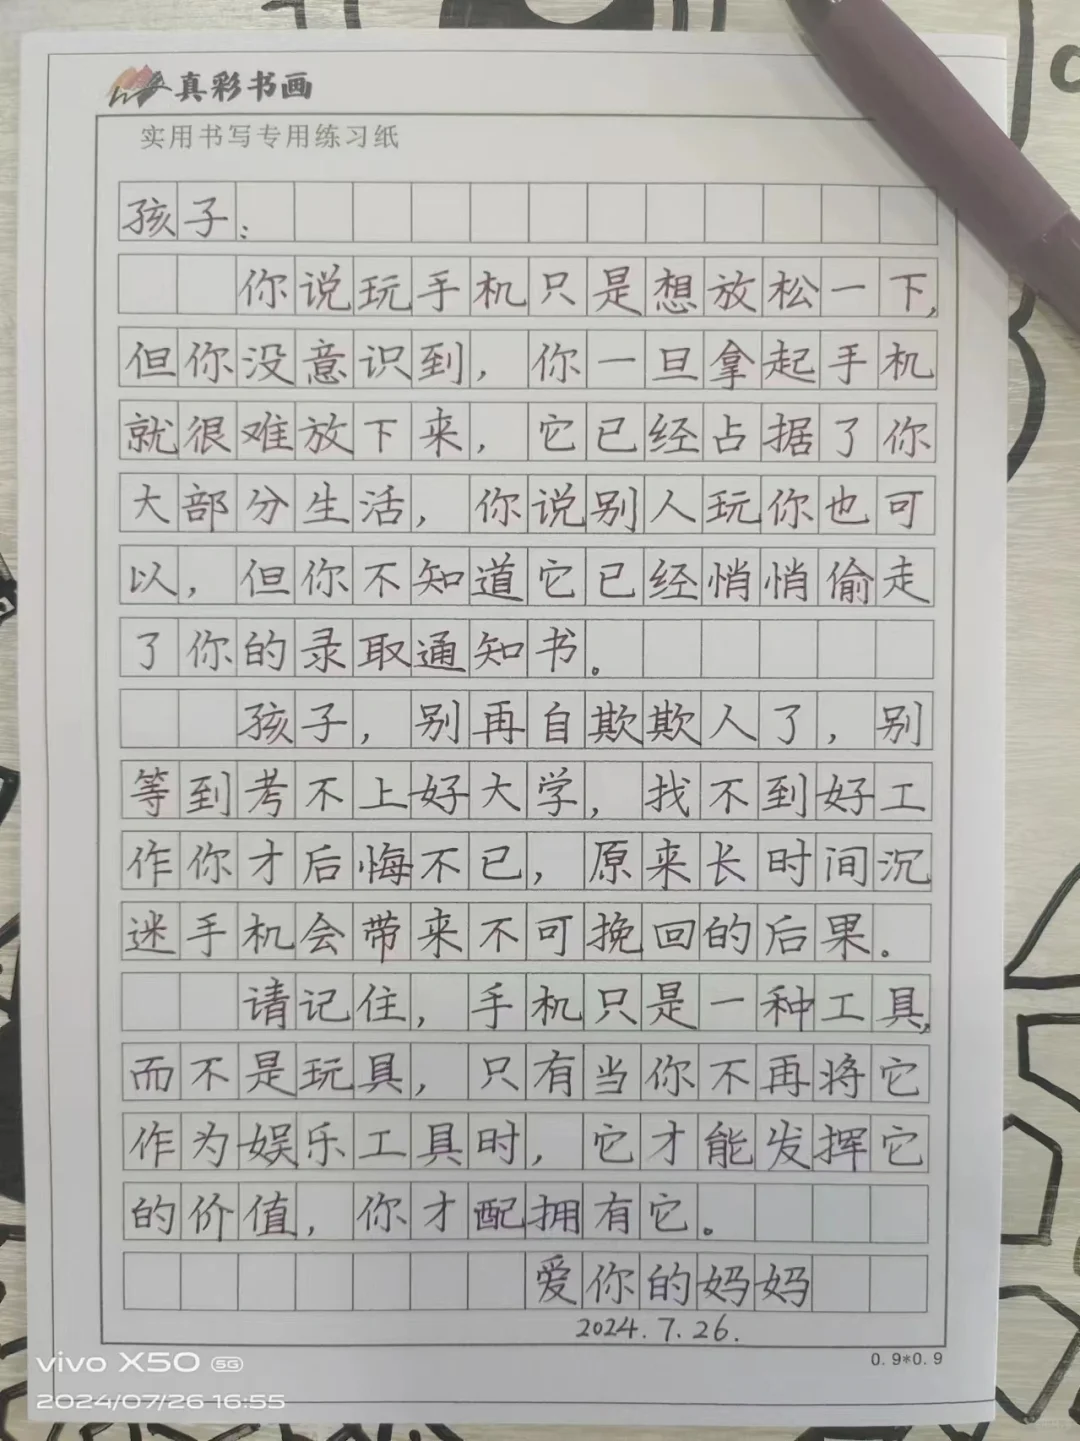 真彩书画
实用书写专用练习纸
孩子：
你说玩手机只是想放松一下，
但你没意识到，你一旦拿起手机
就很难放下来，它已经占据了你
大部分生活，你说别人玩你也可
以，但你不知道它已经悄悄偷走
了你的录取通知书。
孩子，别再自欺欺人了，别
等到考不上好大学，找不到好工
作你才后悔不已，原来长时间沉
迷手机会带来不可挽回的后果。
请记住，手机只是一种工具，
而不是玩具，只有当你不再将它
作为娱乐工具时，它才能发挥它
的价值，你才配拥有它。
爱你的妈妈
2024.7.26.
0.9*0.9
vivo X50 5G
2024/07/26 16:55